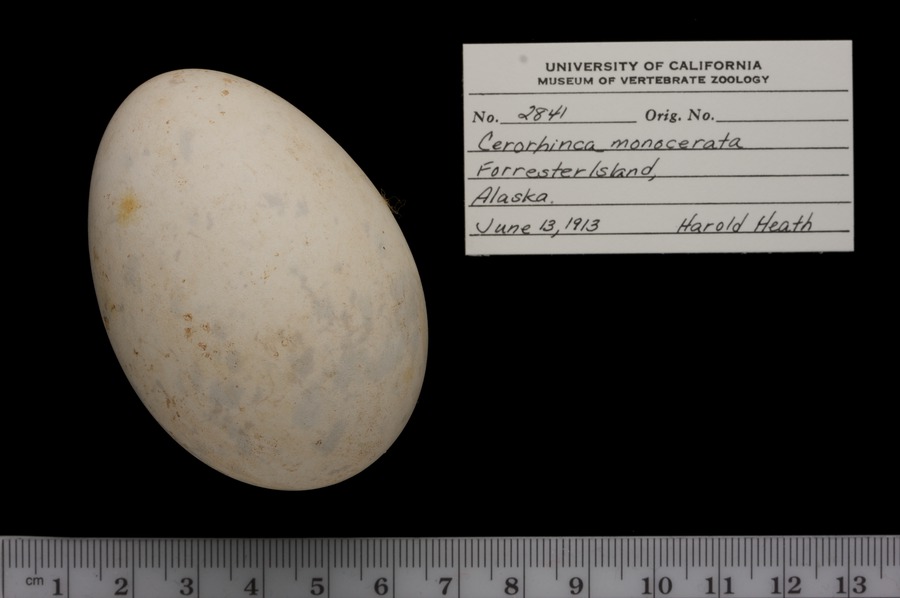 UNIVERSITY OF CALIFORNIA
MUSEUM OF VERTEBRATE ZOOLOGY
No. 2841 Orig. No.
Cerorhinca monocerata
Forrester Island,
Alaska.
June 13, 1913 Harold Heath
cm 1 2 3 4 5 6 7 8 9 10 11 12 13